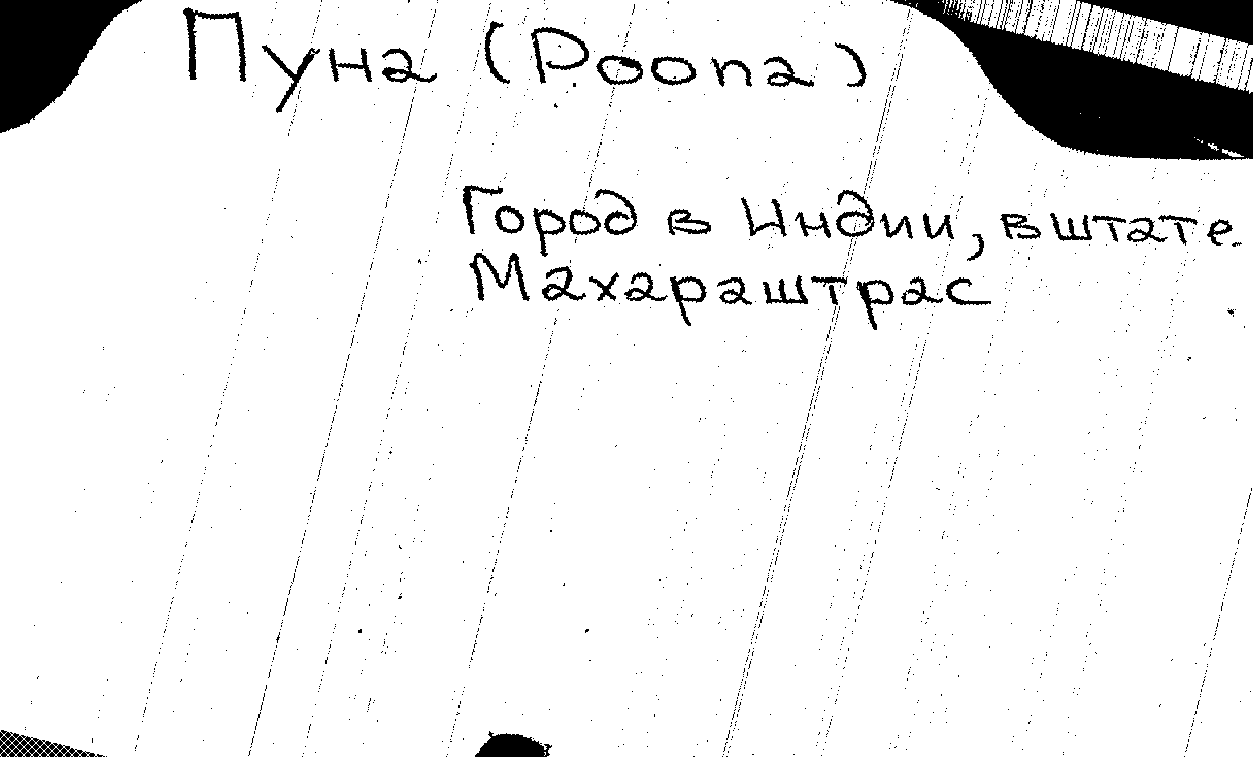 Пуна (Poona)
Город в Индии, в штате
Махараштрас